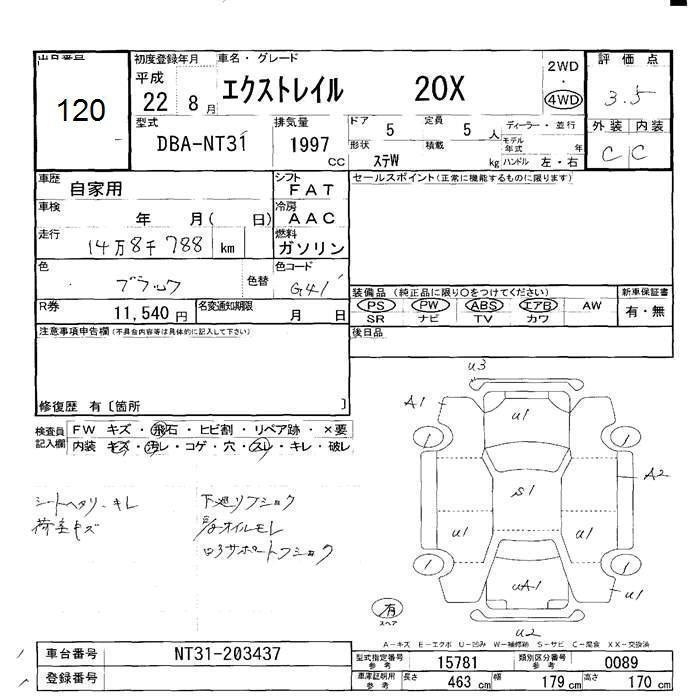 初度登録年月 車名・グレード 評価点
120 平成 22 8月 エクストレイル 20X 2WD・4WD 3.5
型式 DBA-NT31 排気量 1997 CC
ドア 5 定員 5 人 ディーラー・並行 外装 内装
形状 ステW 積載 kg モデル年式 年 ハンドル 左・右 C C
車歴 自家用 シフト FAT セールスポイント(正常に機能するものに限ります)
車検 年 月( 日) 冷房 AAC
走行 14万8千788 km 燃料 ガソリン
色 ブラック 色替 色コード G41
装備品(純正品に限り○をつけてください) 新車保証書
R券 11,540円 名変通知期限 月 日
PS PW ABS エアB AW 有・無
SR ナビ TV カワ
注意事項申告欄(不具合内容等は具体的に記入して下さい) 後日品
修復歴 有〔箇所 〕
検査員記入欄 FW キズ・飛石・ヒビ割・リペア跡・×要
内装 キズ・汚レ・コゲ・穴・スレ・キレ・破レ
シートヘタリ・キレ 下廻リフショク
荷室キズ オイルモレ
サポートフショク
U3
A1 U1
1 1
A2
S1
U1 U1
1 1
UA1 U1
有 スペア
U2
A-キズ E-エクボ U-凹み W-補修跡 S-サビ C-腐食 XX-交換済
車台番号 NT31-203437 型式指定番号 参考 15781 類別区分番号 参考 0089
登録番号 車庫証明用 参考 長さ 463 cm 幅 179 cm 高さ 170 cm